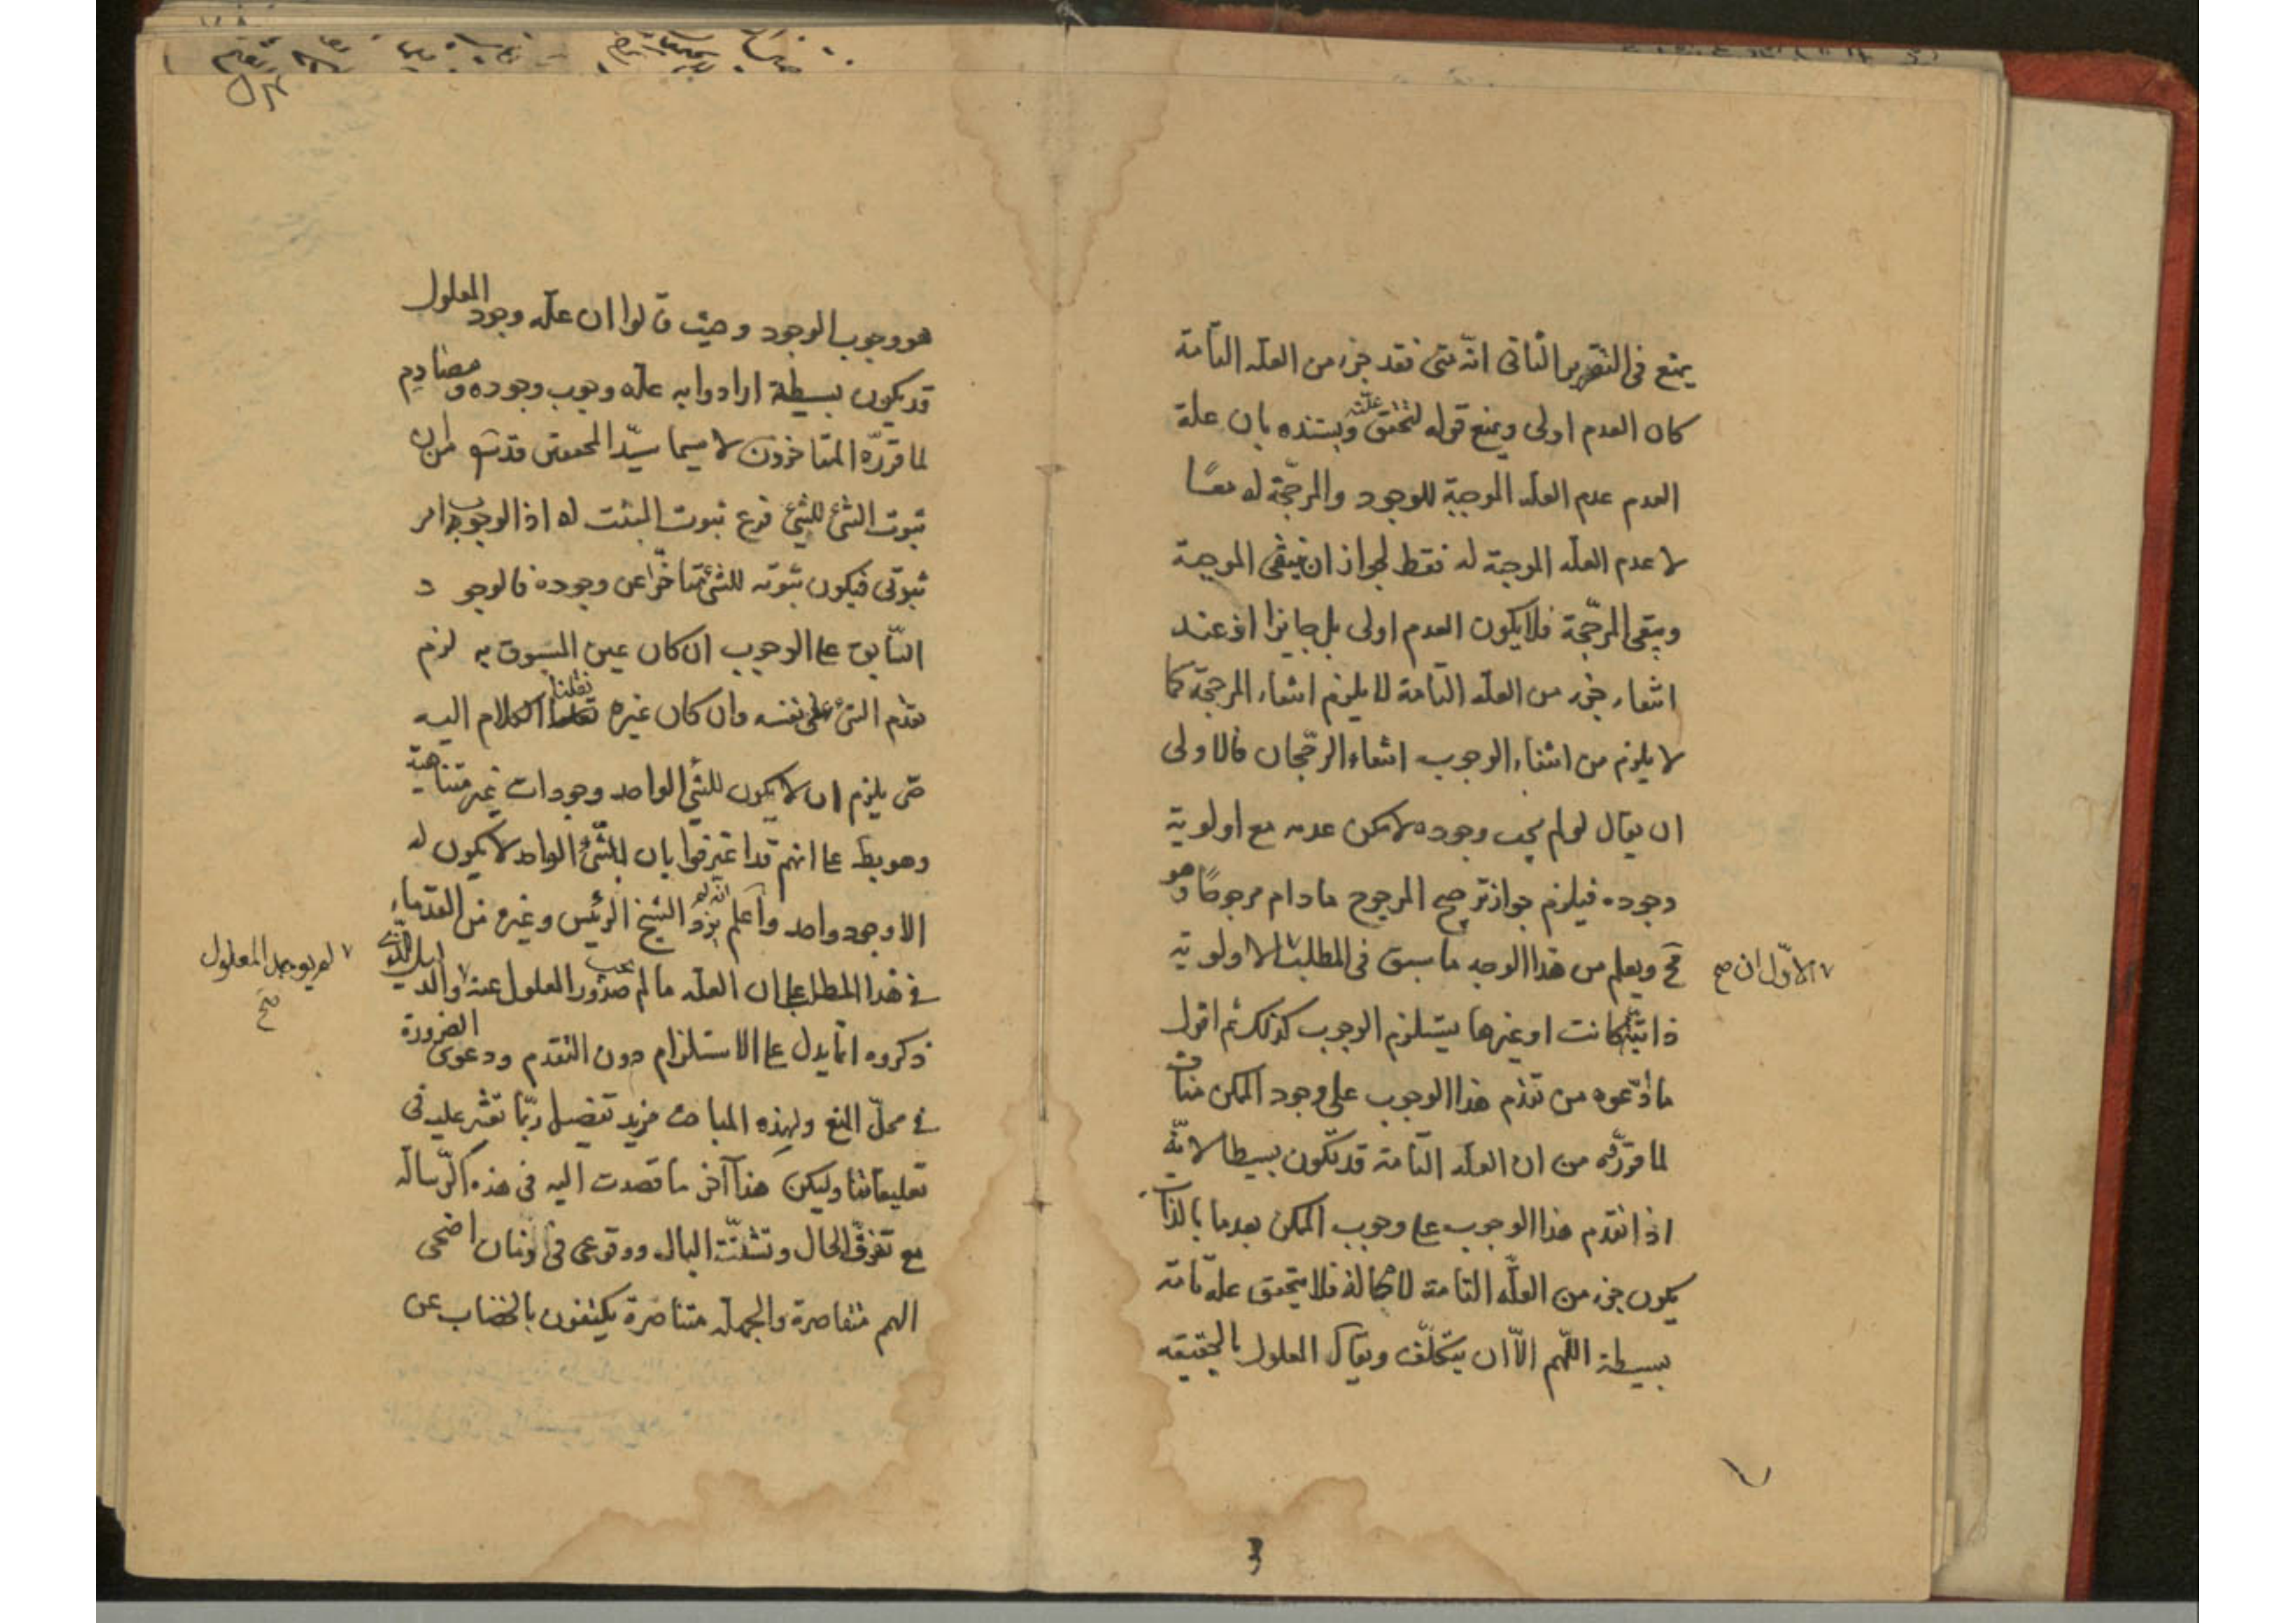 يمنع في التقرير الثاني انّه متى فقد جزء من العلّه التّامة
كان العدم اولى ويمنع قوله لتحقق علّته ويستنده بان علة
العدم عدم العلّه الموجبة للوجود والمرجّحة له معًا
لا عدم العلّه الموجبة له فقط لجواز ان ينتفى الموجبة
ويبقى المرجّحة فلا يكون العدم اولى بل جايزا اذ عند
انتفاء جزء من العلّه التّامة لا يلزم انتفاء المرجحّة كما
لا يلزم من انتفاء الوجوب انتفاء الرجّحان فالاولى
ان يقال لو لم يجب وجوده لامكن عدمه مع اولوية
وجوده فيلزم جواز ترجيح المرجوح ما دام مرجوحًا وهو
مح ويعلم من هذا الوجه ما سبق في المطلب الاولوية
الاوّل ان صح
ذاتية كانت او غيرها يستلزم الوجوب كذلك ثم اقول
ما ادّعوه من تقدم هذا الوجوب على وجود الممكن مناف
لما قرّروه من ان العلّه التّامة قد تكون بسيطا لانّه
اذا تقدم هذا الوجوب على وجوب الممكن بعدما بالذات
يكون جزء من العلّه التّامة لا محالة فلا يتحقق علة تامة
بسيطة اللّهم الّا ان يتكلّف ويقال المعلول بالحقيقه
هو وجوب الوجود وحيث قالوا ان علّه وجود المعلول
قد يكون بسيطة ارادوا به علّه وجوب وجوده و مصادم
لما قرّره المتاخرون لا سيما سيّد المحققين قدسّره من ان
ثبوت الشئ للشئ فرع ثبوت المثبت له اذ الوجوب امر
ثبوتي فيكون ثبوته للشئ متاخّرا عن وجوده فالوجو د
السّابق على الوجوب ان كان عين المسبوق به لزم
تقدّم الشئ على نفسه وان كان غيره نقلنا الكلام اليه
حتى يلزم ان لا يكون للشئ الواحد وجودات غير متناهية
وهو بط على انهم قد اعترفوا بان للشّئ الواحد لا يكون له
الا وجود واحد واعلم انّه لم يزد الشيخ الرئيس وغيره من القدماء
في هذا المطلب على ان العلّه ما لم يجب صدور المعلول عنه والدليل الّذي
لم يوجد المعلول صح
ذكروه انّما يدل على الاستلزام دون التقدم ودعوى الضرورة
في محلّ المنع ولهذه المباحث مزيد تفصيل ربّما تعثر عليه في
تعليقاتنا وليكن هذا آخر ما قصدت اليه في هذه الرّسالة
مع تفرّق الحال وتشتّت البال ووقوعى في زمان اضحى
الهمم متقاصرة والجمله متناصرة يكتفون بالخضاب عن